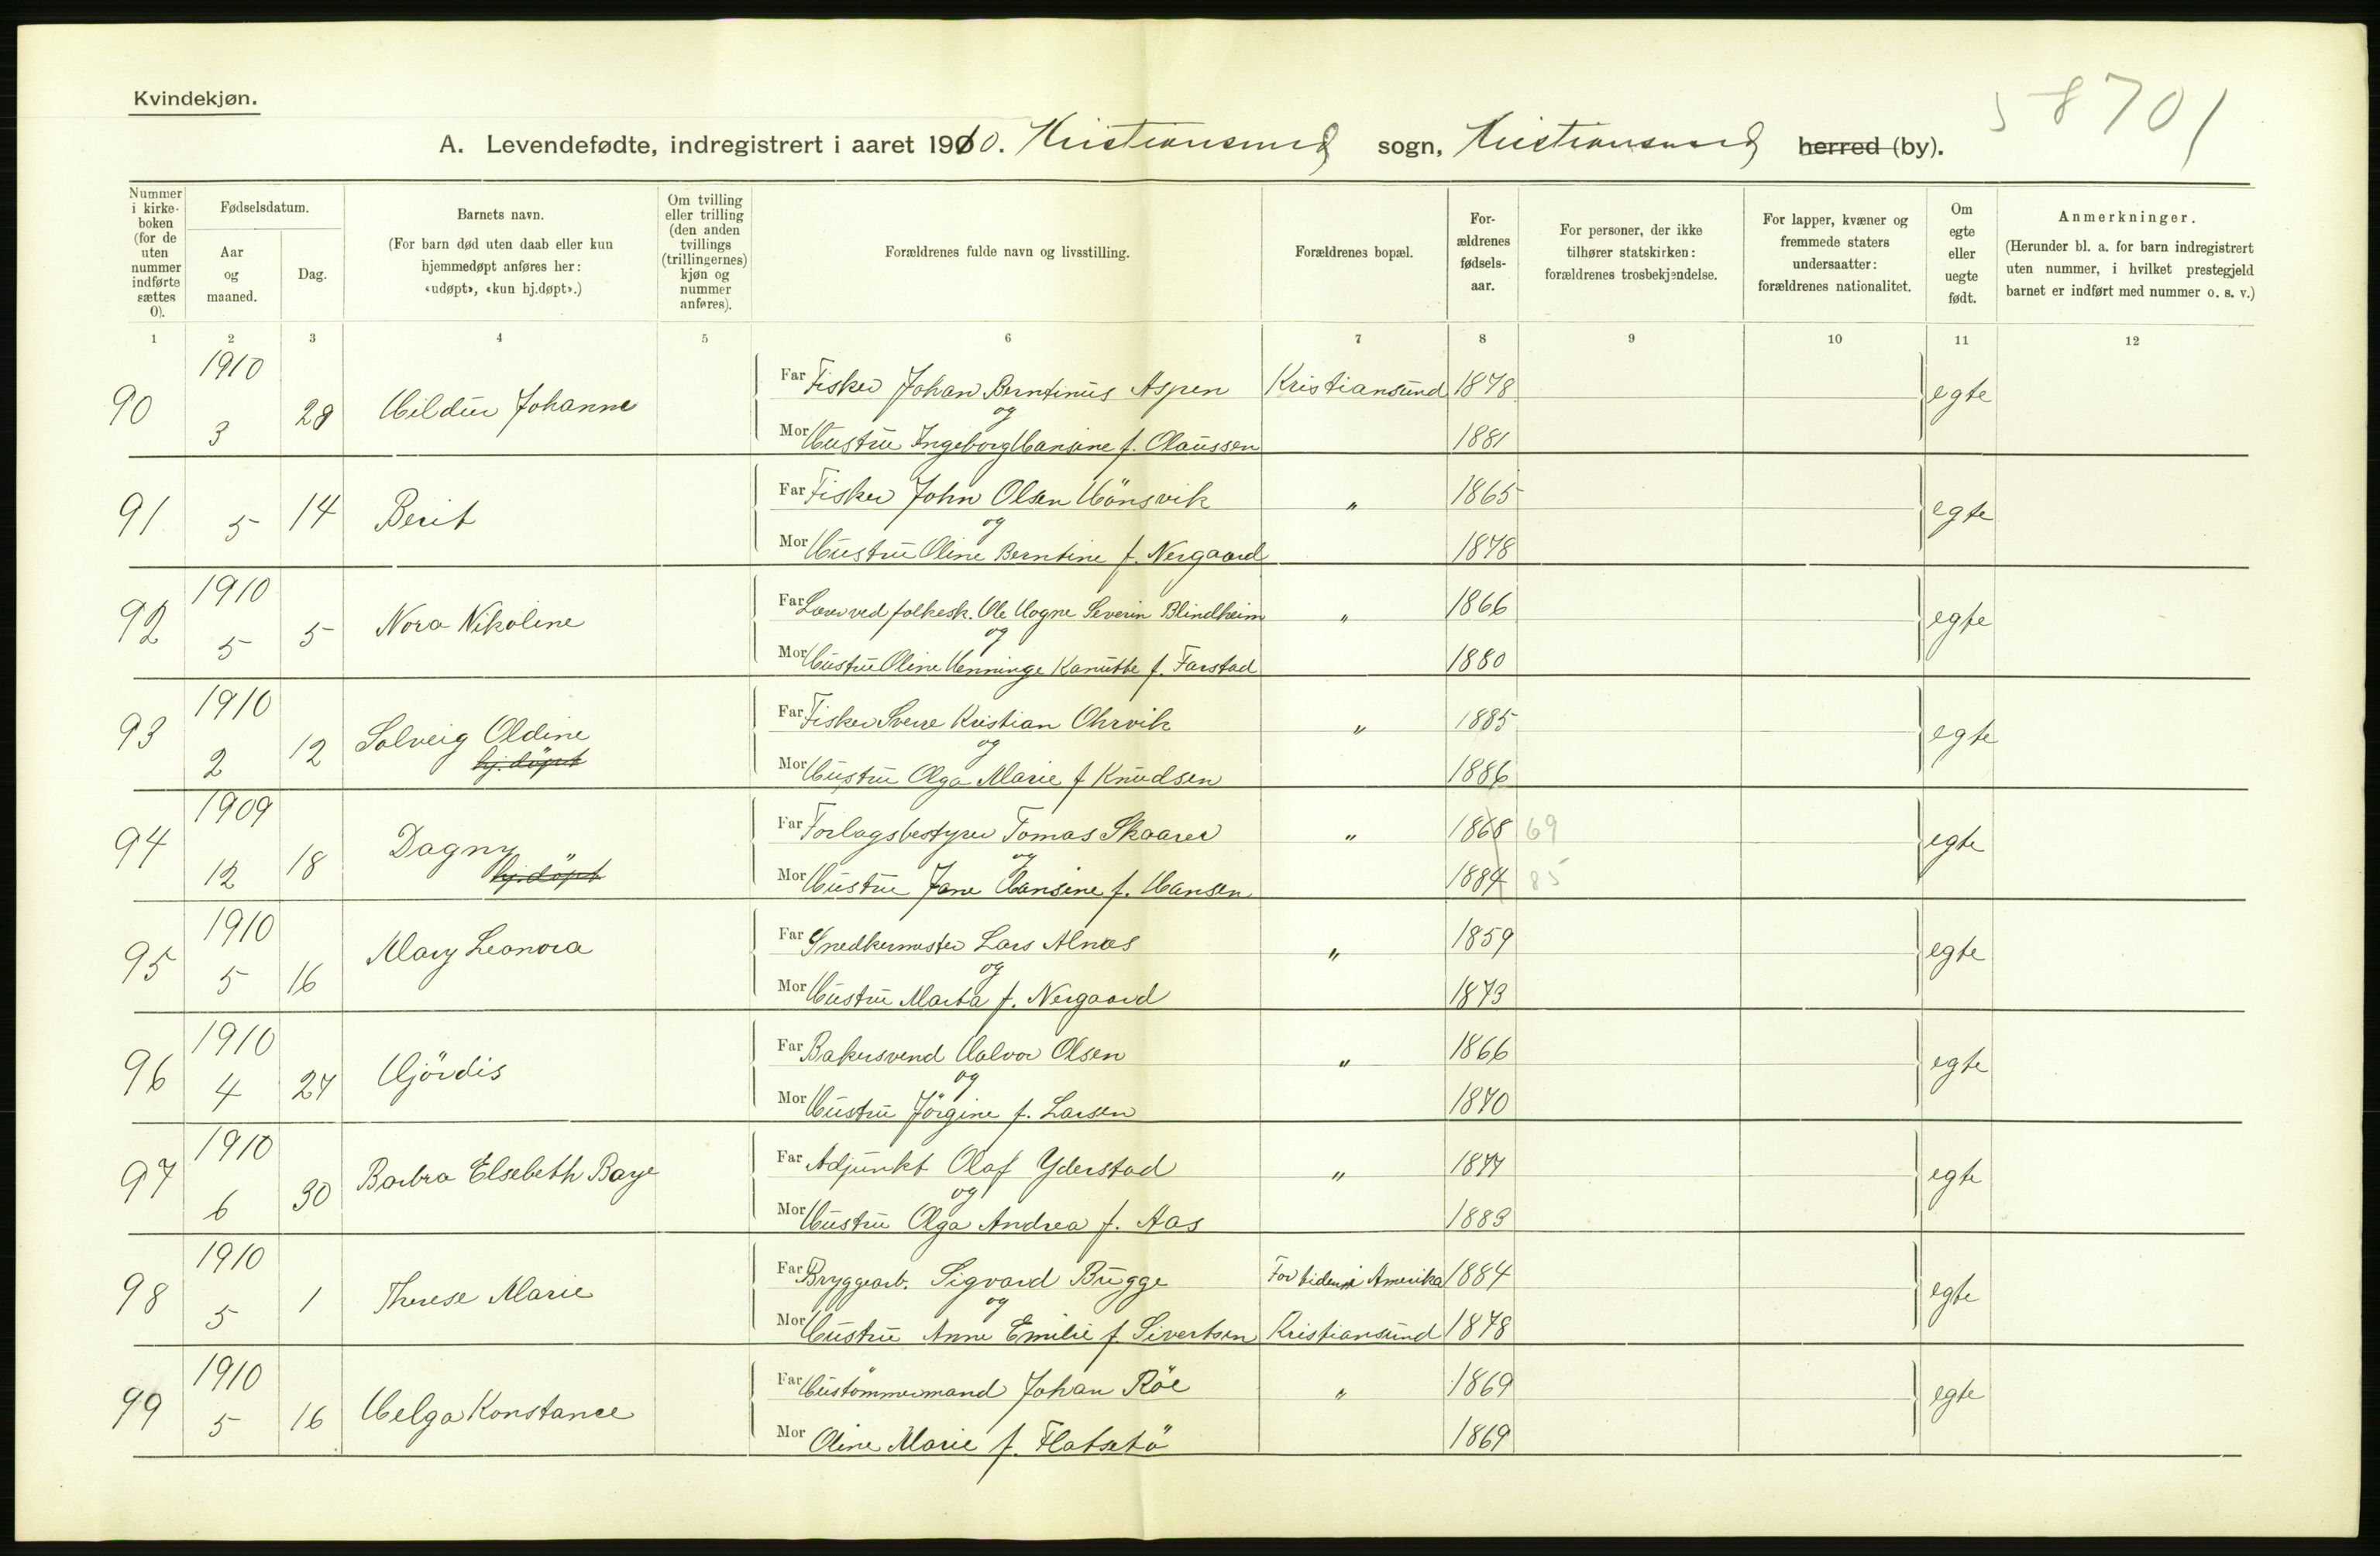 Kvindekjøn.
58701
A. Levendefødte, indregistrert i aaret 1910. Kristiansund sogn, Kristiansund herred (by).
Nummer i kirke-boken (for de uten nummer indførte sættes 0).
Fødselsdatum.
Aar og maaned.
Dag.
Barnets navn.
(For barn død uten daab eller kun hjemmedøpt anføres her: «udøpt», «kun hj.døpt».)
Om tvilling eller trilling (den anden tvillings (trillingernes) kjøn og nummer anføres).
Forældrenes fulde navn og livsstilling.
Forældrenes bopæl.
For-ældrenes fødsels-aar.
For personer, der ikke tilhører statskirken: forældrenes trosbekjendelse.
For lapper, kvæner og fremmede staters undersaatter: forældrenes nationalitet.
Om egte eller uegte født.
Anmerkninger.
(Herunder bl. a. for barn indregistrert uten nummer, i hvilket prestegjeld barnet er indført med nummer o. s. v.)
1 2 3 4 5 6 7 8 9 10 11 12
1910
Far Fisker Johan Berntinus Aspen Kristiansund 1878
90 3 28 Hildur Johanne og egte
Mor Hustru Ingeborg Hansine f. Olaussen 1881
Far Fisker John Olsen Hönsvik " 1865
91 5 14 Berit og egte
Mor Hustru Oline Berntine f. Nergaard 1878
1910
Far Lærer ved folkesk. Ole Hogne Severin Blindheim " 1866
92 5 5 Nora Nikoline og egte
Mor Hustru Oline Henninge Kanutte f. Farstad 1880
1910
Far Fisker Sverre Kristian Ohrvik " 1885
93 2 12 Solveig Oldine og egte
hj.döpt
Mor Hustru Olga Marie f Knudsen 1886
1909
Far Forlagsbestyrer Tomas Skaarer " 1868 69
94 12 18 Dagny og egte
hj.döpt
Mor Hustru Jane Hansine f. Hansen 1884 85
1910
Far Snedkermester Lars Alnæs " 1859
95 5 16 Mary Leonora og egte
Mor Hustru Marta f. Nergaard 1873
1910
Far Bakersvend Halvor Olsen " 1866
96 4 27 Hjördis og egte
Mor Hustru Jörgine f. Larsen 1870
1910
Far Adjunkt Olaf Yderstad " 1877
97 6 30 Barbra Elsebeth Barye og egte
Mor Hustru Olga Andrea f. Aas 1883
1910
Far Bryggearb. Sigvard Brugge For tiden i Amerika 1884
98 5 1 Therese Marie og egte
Mor Hustru Anne Emilie f. Sivertsen Kristiansund 1878
1910
Far Hustömmermand Johan Röe " 1869
99 5 16 Helga Konstance egte
Mor Oline Marie f. Flatsetö 1869